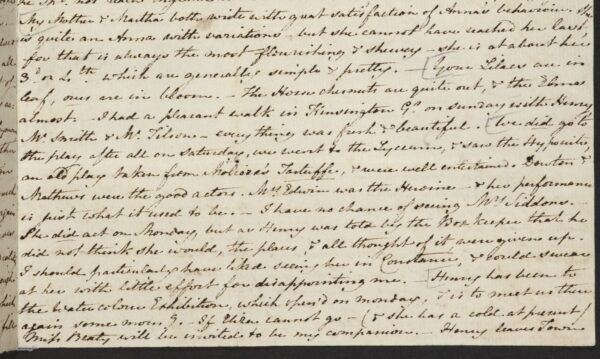 My Mother & Martha both write with great satisfaction of Anna's behaviour. She
is quite an Anna with variations - but she cannot have reached her last,
for that is always the most flourishing & shewey - she is at about her
3d or 4th which are generally simple & pretty. - Your Lilacs are in
leaf, ours are in bloom. - The Horse chesnuts are quite out, & the Elms
almost. - I had a pleasant walk in Kensington Gs on sunday with Henry,
Mr Smith & Mr Tilson - everything was fresh & beautiful. - We did go to
the play after all on Saturday, we went to the Lyceum, & saw the Hypocrite,
an old play taken from Moliere's Tartuffe, & were well entertained. Dowton &
Mathews were the good actors. Mrs Edwin was the Heroine - & her performance
is just what it used to be. - I have no chance of seeing Mrs Siddons. -
She did act on Monday, but as Henry was told by the Boxkeeper that he
did not think she would, the places, & all thought of it, were given up.
I should particularly have liked seeing her in Constance, & could swear
at her with little effort for disappointing me. - Henry has been to
the Watercolour Exhibition, which open'd on monday, & is to meet us there
again some morng. - If Eliza cannot go - (& she has a cold at present)
Miss Beaty will be invited to be my companion. - Henry leaves Town